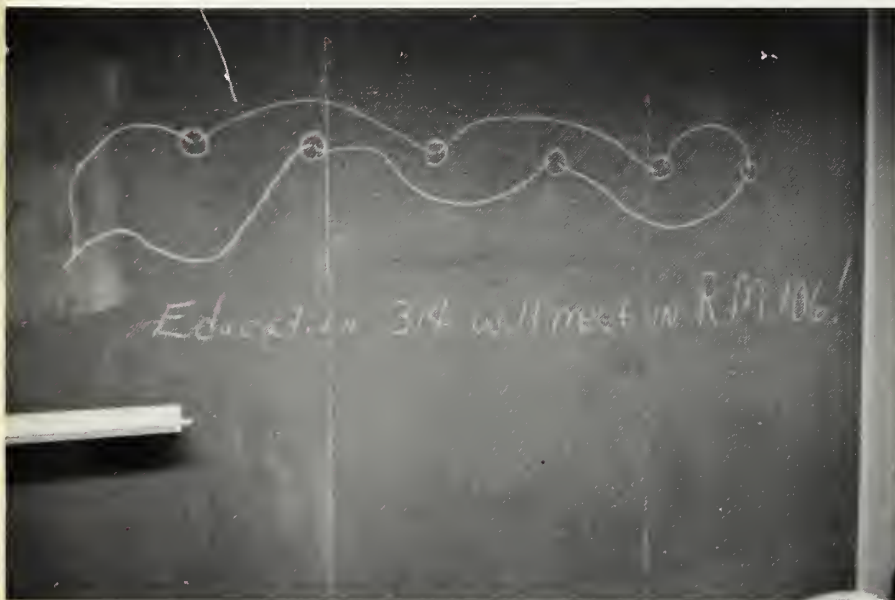 Education 314 will meet in RM 106!